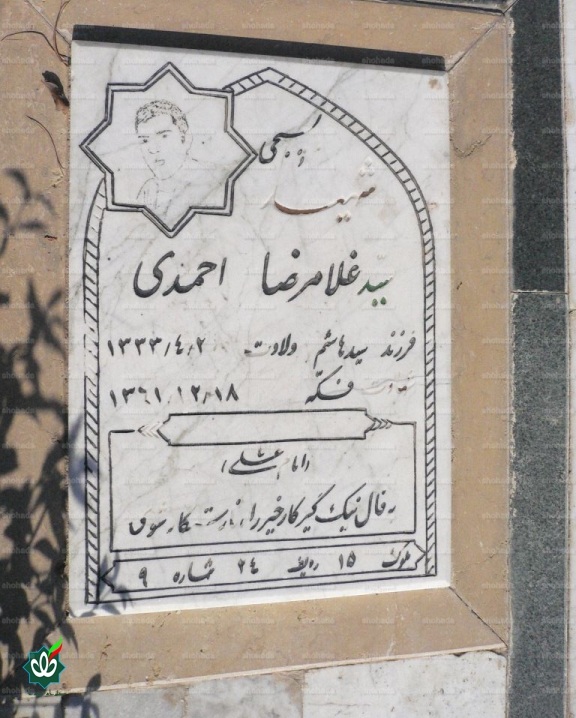 بسمه تعالی
شهید
سید غلامرضا احمدی
فرزند سیدهاشم ولادت ۱۳۳۳/۴/۲
شهادت فکه ۱۳۶۱/۱۲/۱۸
(امام علی)
فال نیک گیر کار خیر را
بلوک ۱۵ ردیف ۲۴ شماره ۹